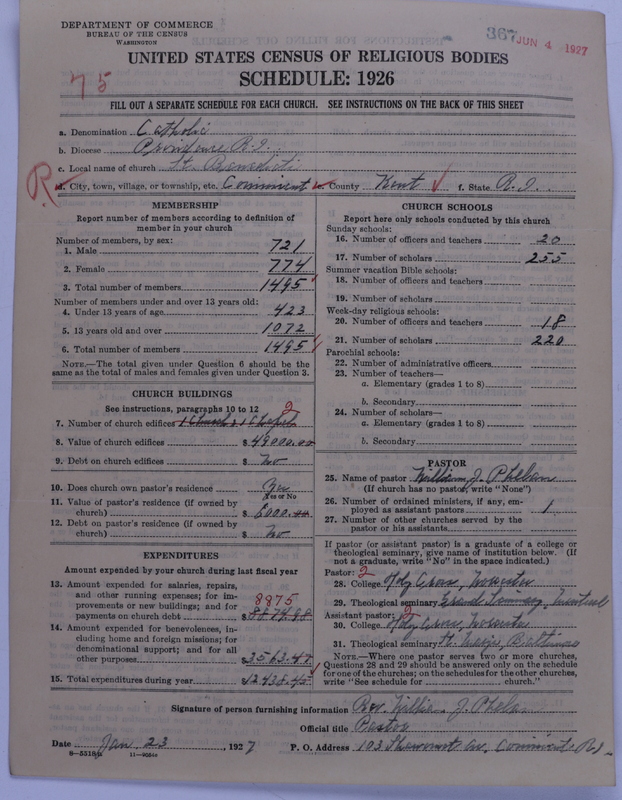 DEPARTMENT OF COMMERCE
BUREAU OF THE CENSUS
WASHINGTON
367 JUN 4 1927
UNITED STATES CENSUS OF RELIGIOUS BODIES
SCHEDULE: 1926
75
FILL OUT A SEPARATE SCHEDULE FOR EACH CHURCH. SEE INSTRUCTIONS ON THE BACK OF THIS SHEET
a. Denomination Catholic
b. Diocese Providence R.I.
c. Local name of church St. Benedict
R
d. City, town, village, or township, etc. Conimicut e. County Kent f. State R.I.
MEMBERSHIP
Report number of members according to definition of
member in your church
Number of members, by sex:
1. Male 721
2. Female 774
3. Total number of members 1495
Number of members under and over 13 years old:
4. Under 13 years of age 423
5. 13 years old and over 1072
6. Total number of members 1495
NOTE.—The total given under Question 6 should be the
same as the total of males and females given under Question 3.
CHURCH BUILDINGS
See instructions, paragraphs 10 to 12 2
7. Number of church edifices 1 Church 1 Chapel
8. Value of church edifices $ 49000.00
9. Debt on church edifices $ No
10. Does church own pastor's residence Yes
Yes or No
11. Value of pastor's residence (if owned by
church) $ 6000.00
12. Debt on pastor's residence (if owned by
church) $ No
EXPENDITURES
Amount expended by your church during last fiscal year
13. Amount expended for salaries, repairs,
and other running expenses; for im-
provements or new buildings; and for 8875
payments on church debt $ 8874.98
14. Amount expended for benevolences, in-
cluding home and foreign missions; for
denominational support; and for all
other purposes $ 3563.47
15. Total expenditures during year $ 12438.45
CHURCH SCHOOLS
Report here only schools conducted by this church
Sunday schools:
16. Number of officers and teachers 20
17. Number of scholars 255
Summer vacation Bible schools:
18. Number of officers and teachers
19. Number of scholars
Week-day religious schools:
20. Number of officers and teachers 18
21. Number of scholars 220
Parochial schools:
22. Number of administrative officers
23. Number of teachers—
a. Elementary (grades 1 to 8)
b. Secondary
24. Number of scholars—
a. Elementary (grades 1 to 8)
b. Secondary
PASTOR
25. Name of pastor William J. Phelan
(If church has no pastor, write "None")
26. Number of ordained ministers, if any, em-
ployed as assistant pastors 1
27. Number of other churches served by the
pastor or his assistants
If pastor (or assistant pastor) is a graduate of a college or
theological seminary, give name of institution below. (If
not a graduate, write "No" in the space indicated.)
Pastor: 2
28. College Holy Cross, Worcester
29. Theological seminary Grand Seminary, Montreal
Assistant pastor: 2
30. College Holy Cross, Worcester
31. Theological seminary St. Marys, Baltimore
NOTE.—Where one pastor serves two or more churches,
Questions 28 and 29 should be answered only on the schedule
for one of the churches; on the schedules for the other churches,
write "See schedule for church."
Signature of person furnishing information Rev. William J. Phelan
Official title Pastor
Date Jan 23, 1927 P. O. Address 103 Ave, Conimicut R.I.
8—5518a 11—9054a